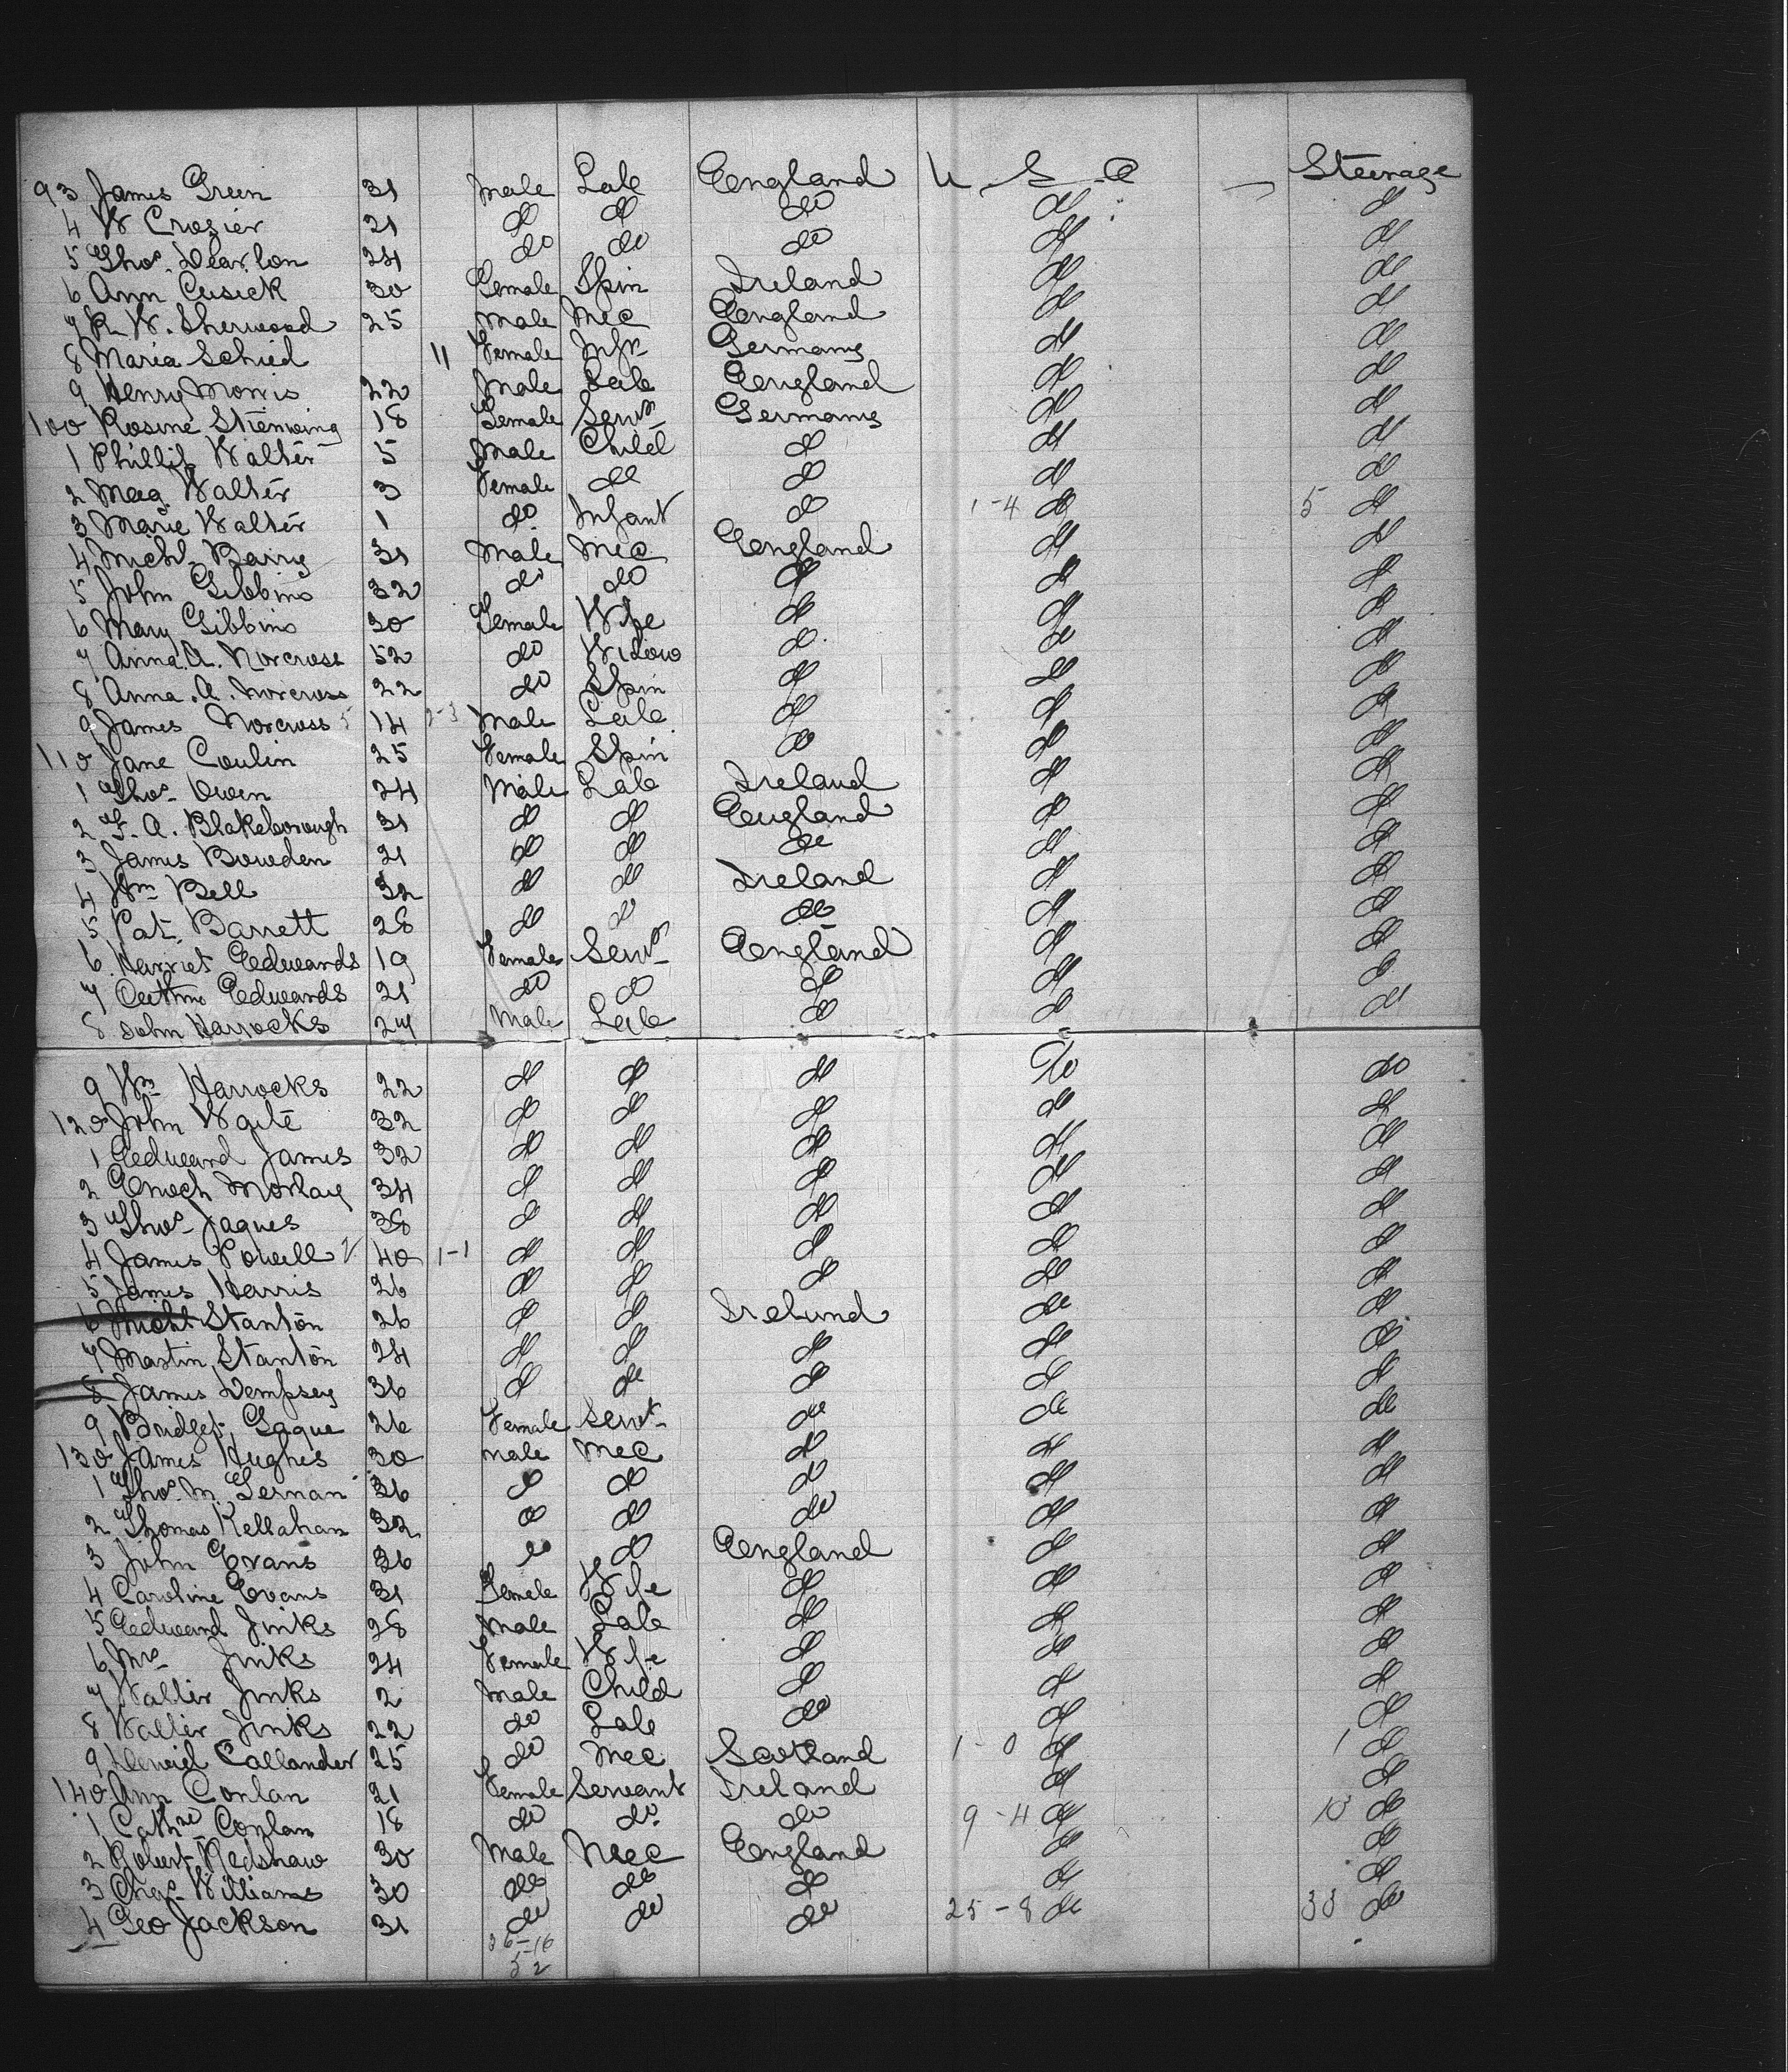 93 James Green 31 Male Lab England U.S.A — Steerage
4 W Crozier 21 do do do do do
5 Thos. Dearlon 24 do do do do do
6 Ann Cusick 30 Female Spin Ireland do do
7 R. W. Sherwood 25 Male Mec England do do
8 Maria Schied 11 Female Infn Germany do do
9 Henry Morris 22 Male Lab England do do
100 Rosine Stienwing 18 Female Servt Germany do do
1 Phillip Walter 5 Male Child do do do
2 Mag. Walter 3 Female do do do do
3 Marie Walter 1 do Infant do 1-4 do 5 do
4 Michl. Barry 31 Male Mec England do do
5 John Gibbins 32 do do do do do
6 Mary Gibbins 30 Female Wife do do do
7 Anna. A. Norcross 52 do Widow do do do
8 Anna. A. Norcross 22 do Spin do do do
9 James Norcross 5 14 2-3 Male Lab do do do
110 Jane Coulin 25 Female Spin do do do
1 Thos. Owen 24 Male Lab Ireland do do
2 F. A. Blakeborough 31 do do England do do
3 James Bowden 21 do do do do do
4 Wm Bell 32 do do Ireland do do
5 Pat. Barrett 28 do do do do do
6 Harriet Edwards 19 Female Servt England do do
7 Edwards 21 do do do do do
8 John Harrocks 24 Male Lab do do do
9 Wm Harrocks 22 do do do do do
120 John Waite 32 do do do do do
1 Edward James 32 do do do do do
2 Enoch Morlay 34 do do do do do
3 Thos. Jaques 38 do do do do do
4 James Powell 40 1-1 do do do do do
5 James Harris 26 do do do do do
6 Michl Stanton 26 do do Ireland do do
7 Martin Stanton 24 do do do do do
8 James Dempsey 36 do do do do do
9 Bridget Gaque 26 Female Servt do do do
130 James Hughes 30 Male Mec do do do
1 Thos. M. Gernan 36 do do do do do
2 Thomas Kellahan 32 do do do do do
3 John Evans 36 do do England do do
4 Caroline Evans 31 Female Wife do do do
5 Edward Jinks 28 Male Lab do do do
6 Mrs Jinks 24 Female Wife do do do
7 Walter Jinks 2 Male Child do do do
8 Walter Jinks 22 do Lab do do do
9 Daviel Callander 25 do Mec Scotland 1-0 do 1 do
140 Ann Conlan 21 Female Servant Ireland do do
1 Cathne Conlan 18 do do do 9-4 do 13 do
2 Robert Redshaw 30 Male Mec England do do
3 Chas. Williams 30 do do do do do
4 Geo Jackson 31 do do do 25-8 do 33 do
36-16
52